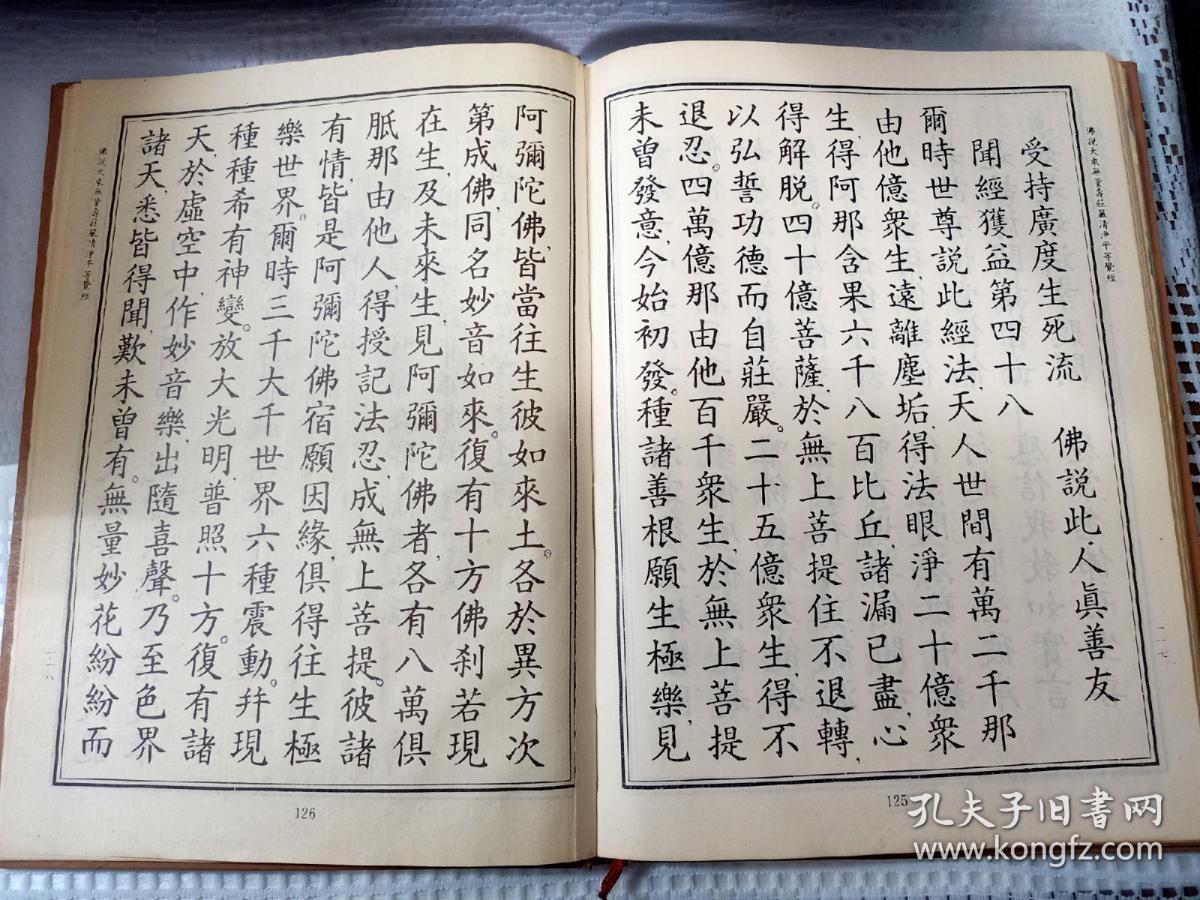 佛說大乘無量壽莊嚴清淨平等覺經
受持廣度生死流　佛說此人真善友
聞經獲益第四十八
爾時世尊說此經法、天人世間有萬二千那
由他億眾生、遠離塵垢、得法眼淨二十億眾
生、得阿那含果六千八百比丘、諸漏已盡、心
得解脫。四十億菩薩、於無上菩提住不退轉、
以弘誓功德而自莊嚴。二十五億眾生、得不
退忍。四萬億那由他百千眾生、於無上菩提
未曾發意、今始初發。種諸善根願生極樂、見
125
阿彌陀佛、皆當往生彼如來土。各於異方次
第成佛、同名妙音如來。復有十方佛剎若現
在生、及未來生、見阿彌陀佛者、各有八萬俱
胝那由他人、得授記法忍、成無上菩提。彼諸
有情、皆是阿彌陀佛宿願因緣、俱得往生極
樂世界。爾時三千大千世界六種震動。幷現
種種希有神變。放大光明、普照十方。復有諸
天、於虛空中作妙音樂、出隨喜聲。乃至色界
諸天、悉皆得聞、歎未曾有。無量妙花紛紛而
佛說大乘無量壽莊嚴清淨平等覺經
126
孔夫子旧书网
www.kongfz.com